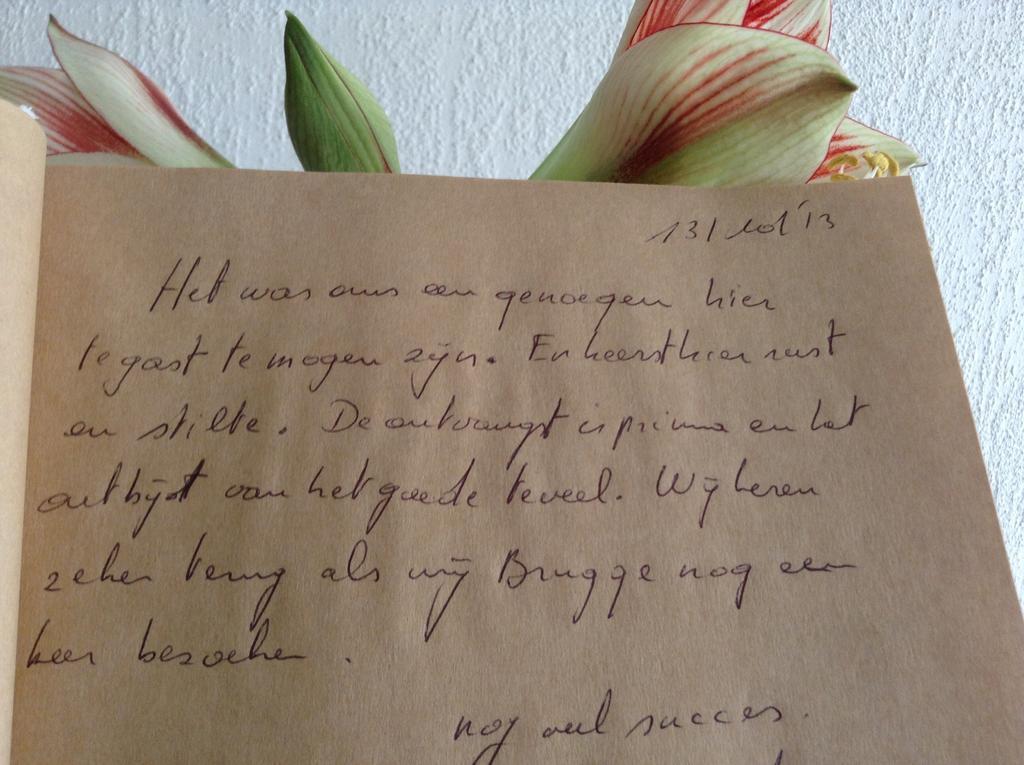 13/10/'13
Het was ons een genoegen hier
te gast te mogen zijn. Er heerst hier rust
en stilte. De ontvangst is prima en het
ontbijt van het goede teveel. Wij keren
zeker terug als wij Brugge nog een
keer bezoeken.
nog veel succes.